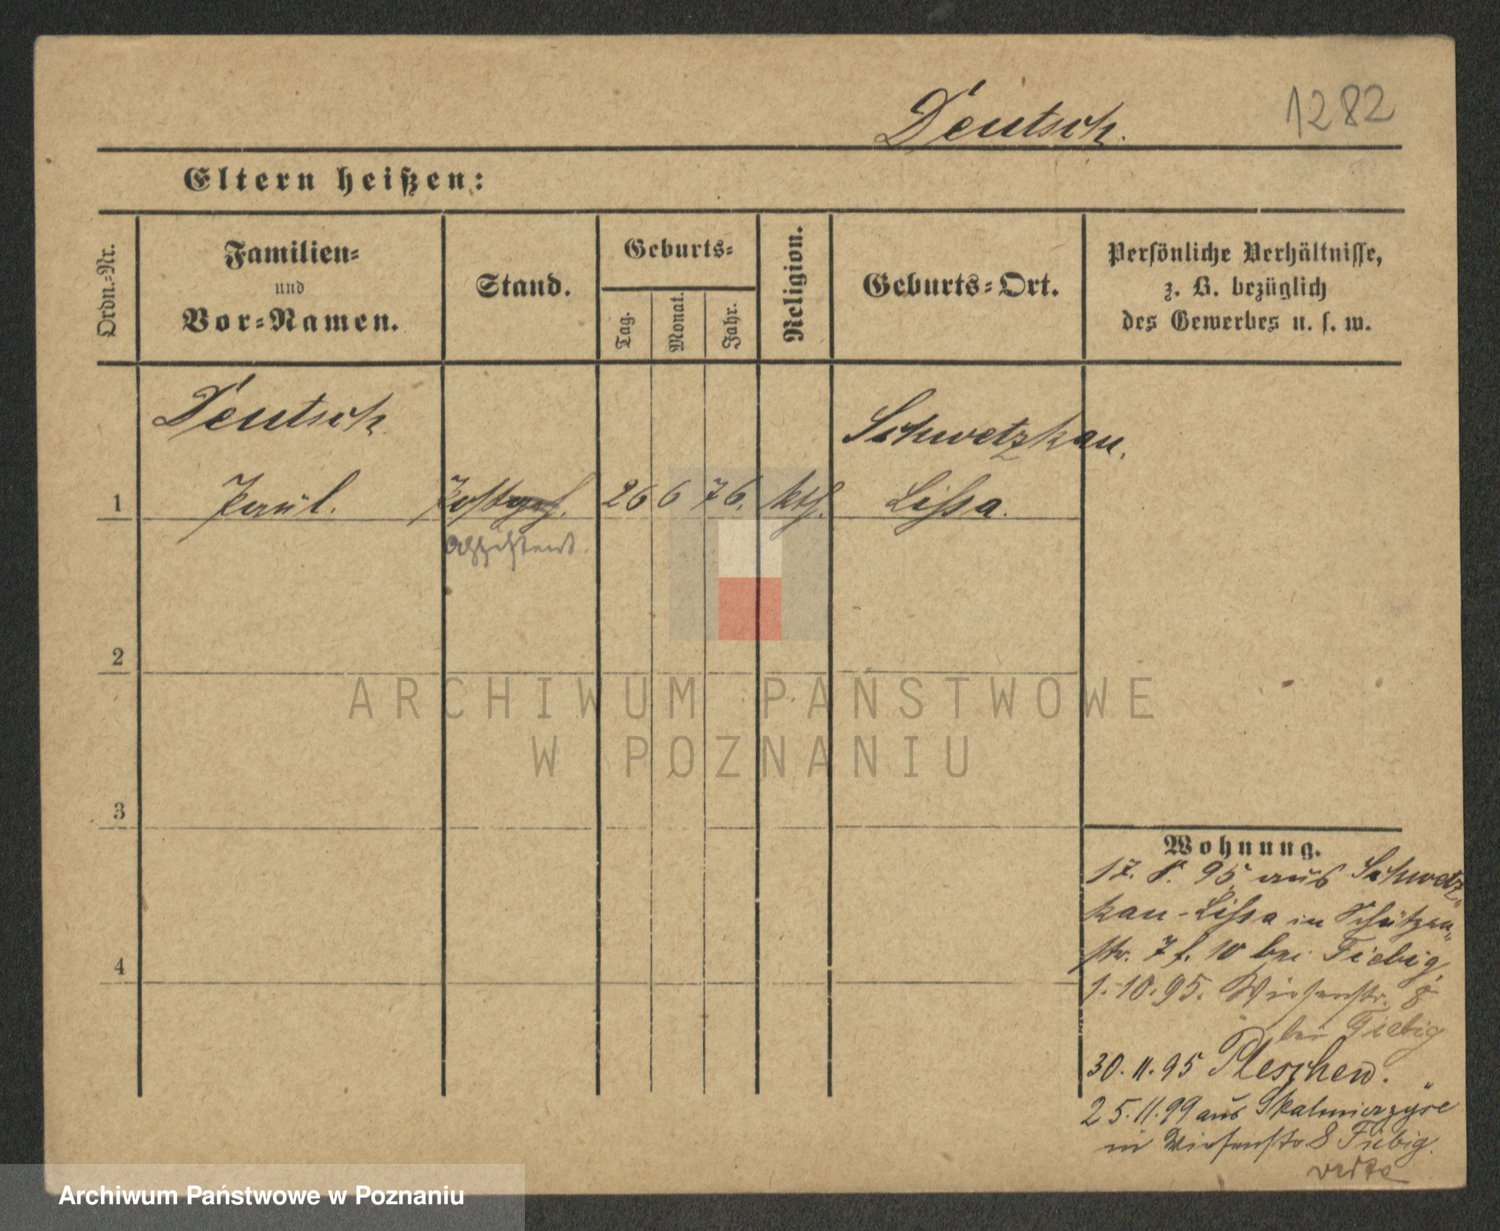 Deutsch.
1282
Eltern heißen:
Ordn.-Nr.
Familien-
und
Vor-Namen.
Stand.
Geburts-
Tag.
Monat.
Jahr.
Religion.
Geburts-Ort.
Persönliche Verhältnisse,
z. B. bezüglich
des Gewerbes u. s. w.
Deutsch
Schwetzkau,
1 Paul. 26 6 76. kth. Lissa.
Assistent.
2
ARCHIWUM PAŃSTWOWE
W POZNANIU
3
Wohnung.
17. 8. 95 aus Schwetz-
kau-Lissa in Schützen-
str. 7 f. 10 bei Fiebig.
1.10.95. Wiesenstr. 8
bei Fiebig
4
30.11.95 Pleschen.
25.11.99 aus Skalmierzyse
in Wiesenstr. 8 Fiebig.
verte
Archiwum Państwowe w Poznaniu